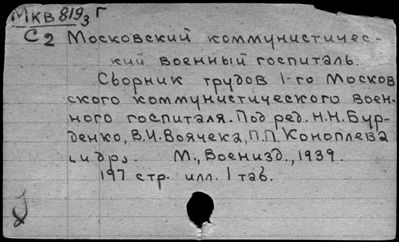 Мкв 819з Г
С2 Московский коммунистичес-
кий военный госпиталь.
Сборник трудов 1-го Москов
ского коммунистического воен-
ного госпиталя. Под ред. Н.Н. Бур-
денко, В.И. Воячека, П.П. Коноплева
и др. М., Воениздд., 1939.
197 стр. илл. 1 таб.